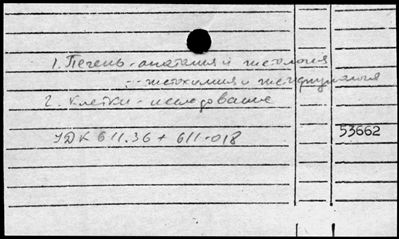 1. Печень - анатомия и гистология
-- гистохимия и
2. Клетки - исследование
УДК 611.36 + 611-018
53662